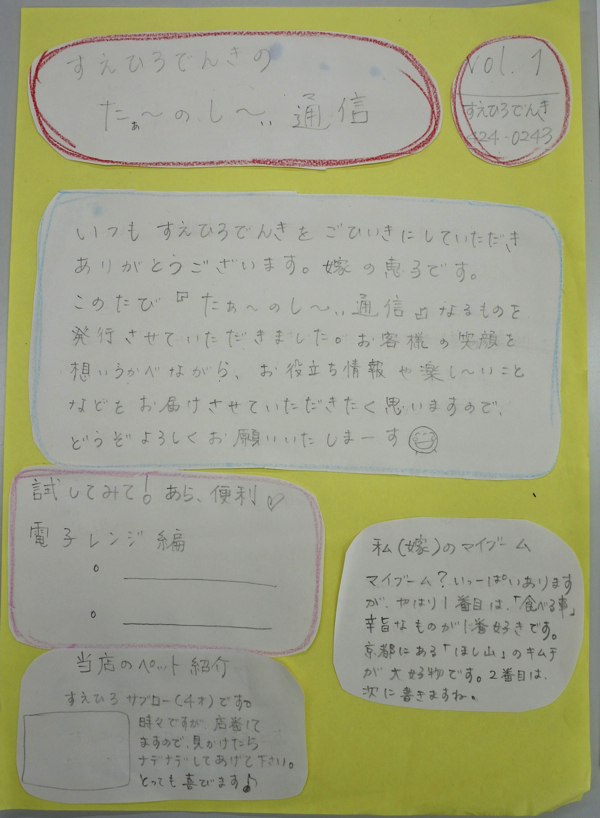 すえひろでんきの
たぁ〜のし〜い通信
vol. 1
すえひろでんき
424-0243
いつも すえひろでんきを ごひいきにしていただき
ありがとうございます。嫁の恵子です。
このたび『たぁ〜のし〜い通信』なるものを
発行させていただきました。お客様の笑顔を
想いうかべながら、お役立ち情報や楽し〜いこと
などをお届けさせていただきたく思いますので、
どうぞよろしくお願いいたしまーす
試してみて!あら、便利
電子レンジ編
私(嫁)のマイブーム
マイブーム?いっーぱいあります
が、やはり1番目は、「食べる事」
辛旨なものが1番好きです。
京都にある「ほし山」のキムチ
が大好物です。2番目は、
次に書きますね。
当店のペット紹介
すえひろサブロー(4才)です。
時々ですが、店番して
ますので、見かけたら
ナデナデしてあげて下さい。
とっても喜びます♪